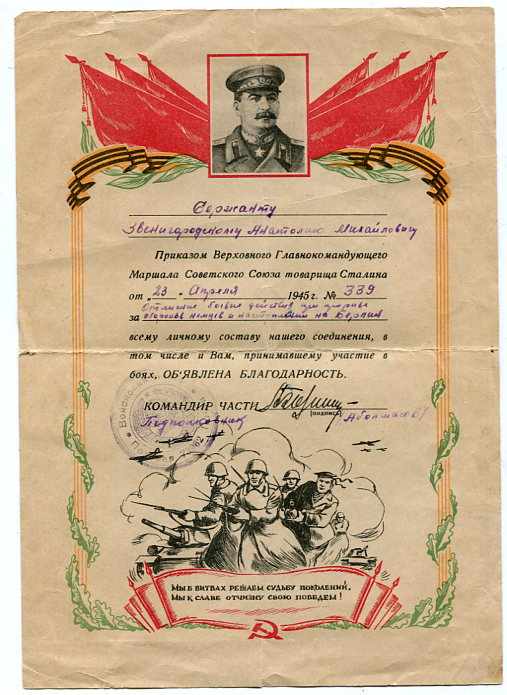 Сержанту
Звенигородскому Анатолию Михайловичу
Приказом Верховного Главнокомандующего
Маршала Советского Союза товарища Сталина
от "23" Апреля 1945 г. № 339
Отличные боевые действия при прорыве
за обороны немцев и наступлении на Берлин
всему личному составу нашего соединения, в
том числе и Вам, принимавшему участие в
боях, ОБ'ЯВЛЕНА БЛАГОДАРНОСТЬ.
КОМАНДИР ЧАСТИ
(подпись)
Подполковник
МЫ В БИТВАХ РЕШАЕМ СУДЬБУ ПОКОЛЕНИЙ,
МЫ К СЛАВЕ ОТЧИЗНУ СВОЮ ПОВЕДЕМ!